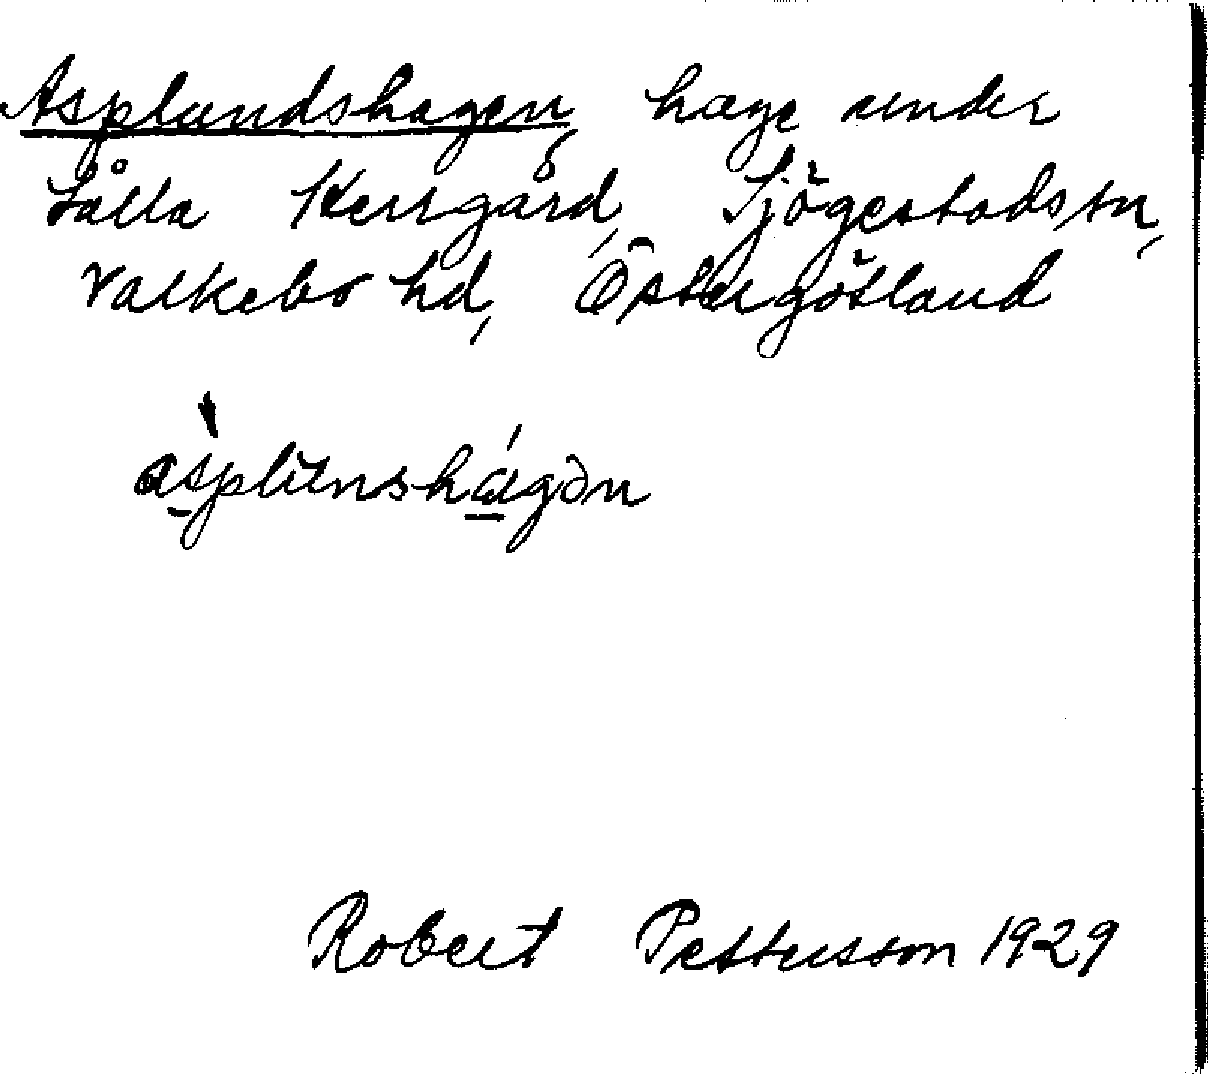 Asplundshagen, hage under
Lålla Herrgård, Sjögestads sn,
Valkebo hd, Östergötland
àsplunshágən
Robert Pettersson 1929